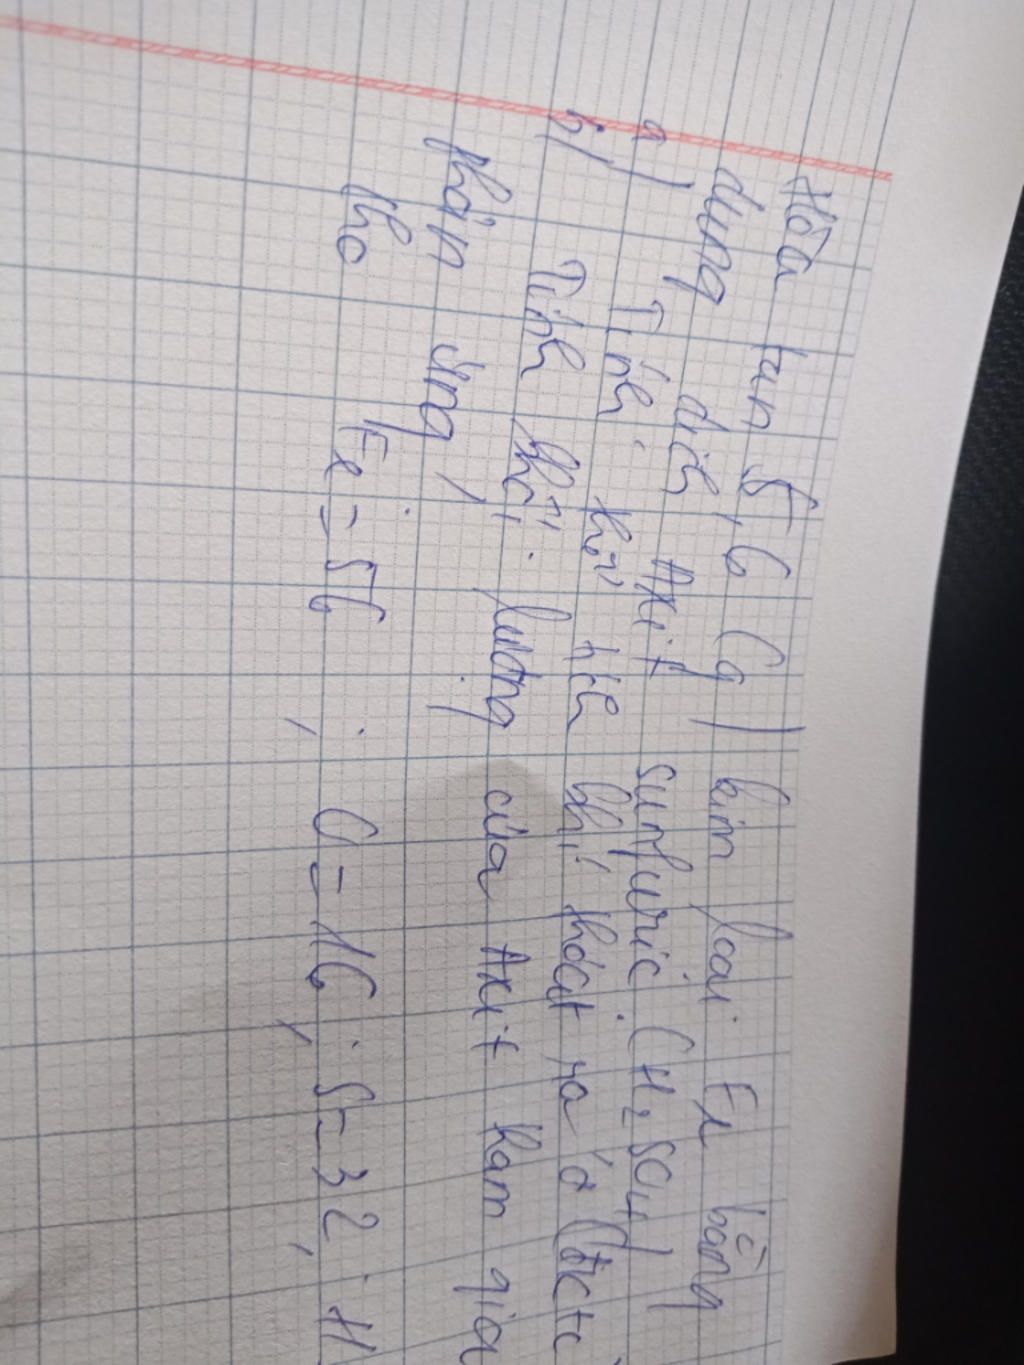 Hòa tan 5,6 (g) kim loại Fe bằng
dung dịch Axit sunfuric (H₂SO₄)
a) Tính thể tích khí thoát ra ở (đktc
b) Tính khối lượng của Axit tham gia
phản ứng,
Cho Fe = 56 ; O = 16 ; S = 32, H